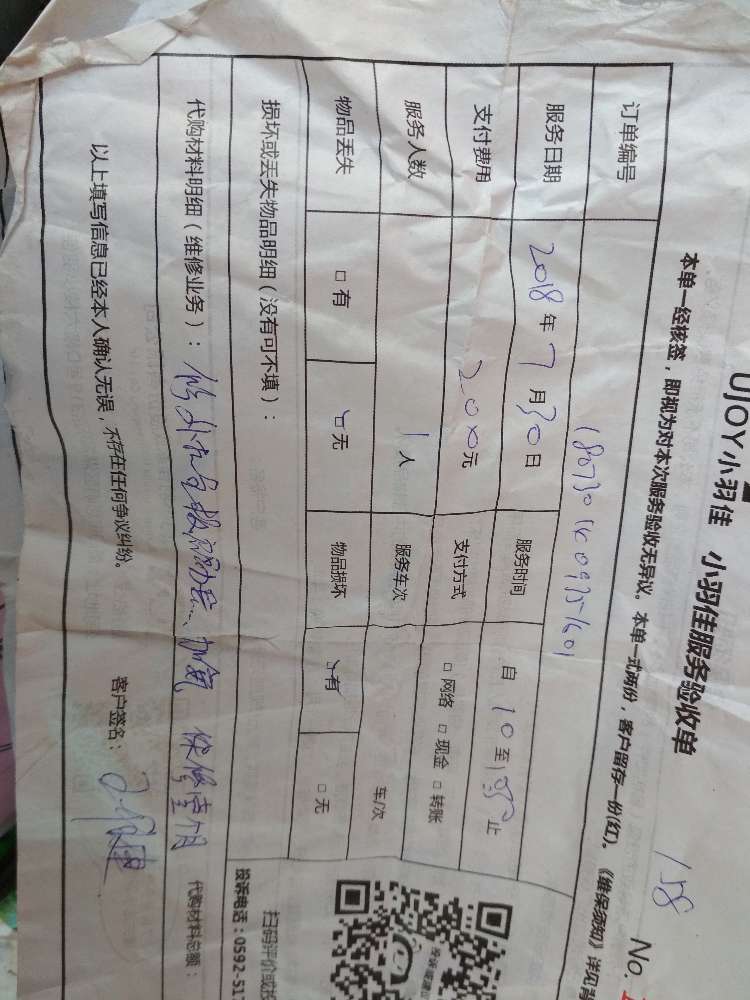 UJOY小羽佳 小羽佳服务验收单
158
No.
本单一经核签，即视为对本次服务验收无异议。本单一式两份，客户留存一份(红)。《维保须知》详见背
订单编号
服务日期 2018 年 7 月 30 日 服务时间 自 10 至 止
支付费用 200 元 支付方式 □ 网络 □ 现金 □ 转账
服务人数 1 人 服务车次 车/次
物品丢失 □ 有 □ 无 物品损坏 □ 有 □ 无
损坏或丢失物品明细（没有可不填）：
扫码评价或投
投诉电话：0592-51
代购材料明细（维修业务）： 加氟 保修壹个月 代购材料总额：
以上填写信息已经本人确认无误，不存在任何争议纠纷。 客户签名：